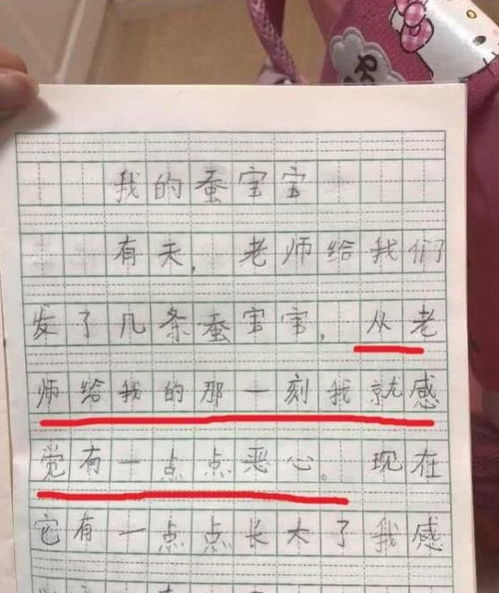 我的蚕宝宝
有天，老师给我们
发了几条蚕宝宝，从老
师给我的那一刻我就感
觉有一点点恶心。现在
它有一点点长大了我感